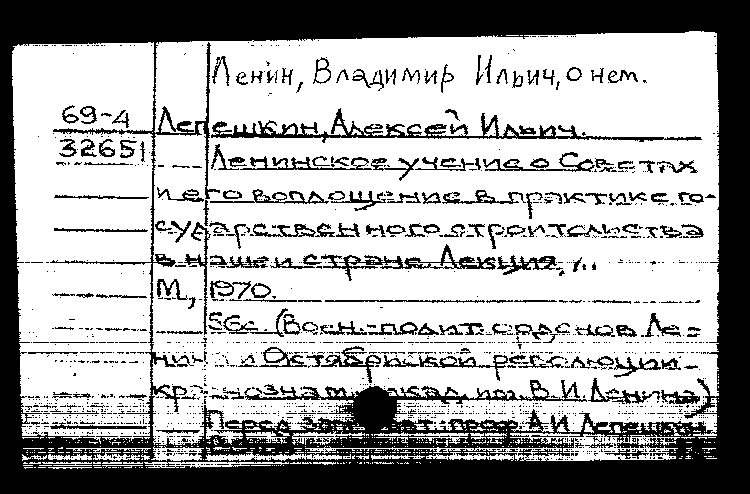 Ленин, Владимир Ильич, о нем.
69-4 Лепешкин, Алексей Ильич.
32651 Ленинское учение о Советах
и его воплощение в практике го-
сударственного строительства
в нашей стране. Лекция,
М., 1970.
56с. (Воен.-полит. орденов Ле-
нина и Октябрьской революции
краснознам. акад. им. В.И.Ленина)
Перед загл. авт.: проф. А.И. Лепешкин